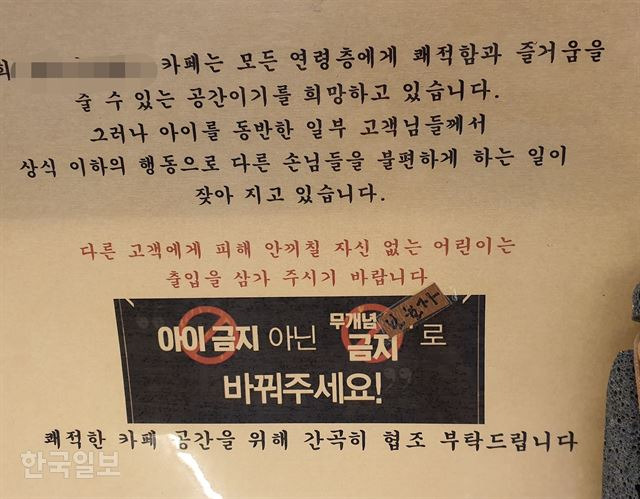 희 카페는 모든 연령층에게 쾌적함과 즐거움을
줄 수 있는 공간이기를 희망하고 있습니다.
그러나 아이를 동반한 일부 고객님들께서
상식 이하의 행동으로 다른 손님들을 불편하게 하는 일이
잦아 지고 있습니다.
다른 고객에게 피해 안끼칠 자신 없는 어린이는
출입을 삼가 주시기 바랍니다
아이 금지 아닌 무개념 보호자 금지 로
바꿔주세요!
쾌적한 카페 공간을 위해 간곡히 협조 부탁드립니다
한국일보